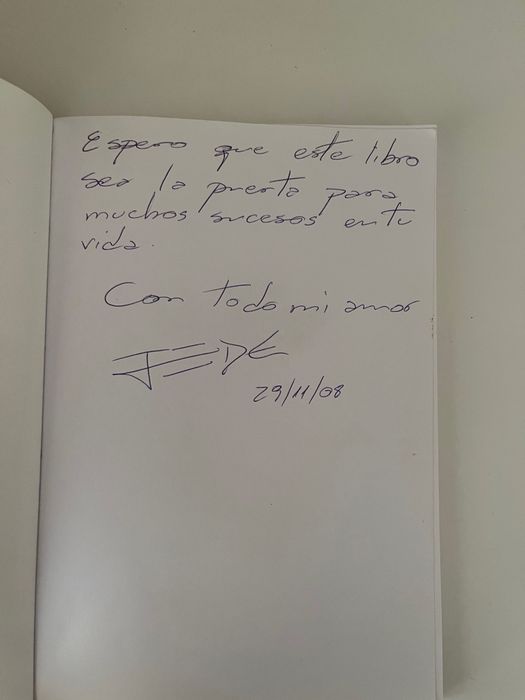 Espero que este libro
sea la puerta para
muchos sucesos en tu
vida.
Con todo mi amor
FEDE
29/11/08